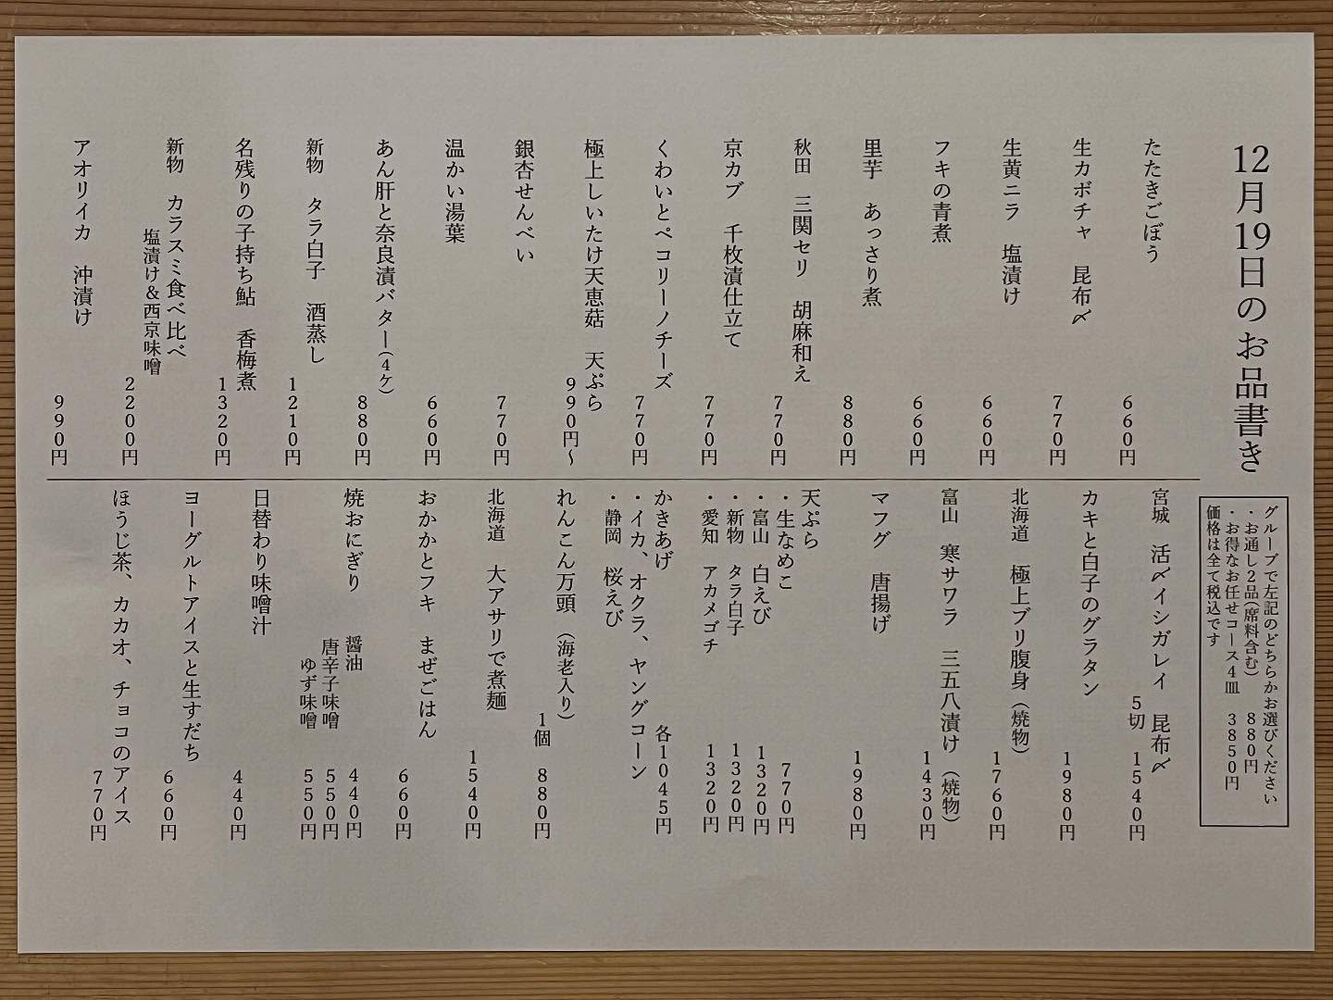 12月19日のお品書き
グループで左記のどちらかお選びください
・お通し2品(席料含む) 880円
・お得なお任せコース4皿 3850円
価格は全て税込です
たたきごぼう
660円
生カボチャ 昆布〆
770円
生黄ニラ 塩漬け
660円
フキの青煮
660円
里芋 あっさり煮
880円
秋田 三関セリ 胡麻和え
770円
京カブ 千枚漬仕立て
770円
くわいとペコリーノチーズ
770円
極上しいたけ天恵菇 天ぷら
990円～
銀杏せんべい
770円
温かい湯葉
660円
あん肝と奈良漬バター(4ケ)
880円
新物 タラ白子 酒蒸し
1210円
名残りの子持ち鮎 香梅煮
1320円
新物 カラスミ食べ比べ
塩漬け&西京味噌
2200円
アオリイカ 沖漬け
990円
宮城 活〆イシガレイ 昆布〆
5切 1540円
カキと白子のグラタン
1980円
北海道 極上ブリ腹身(焼物)
1760円
富山 寒サワラ 三五八漬け(焼物)
1430円
マフグ 唐揚げ
1980円
天ぷら
・生なめこ 770円
・富山 白えび 1320円
・新物 タラ白子 1320円
・愛知 アカメゴチ 1320円
かきあげ 各1045円
・イカ、オクラ、ヤングコーン
・静岡 桜えび
れんこん万頭(海老入り)
1個 880円
北海道 大アサリで煮麺
1540円
おかかとフキ まぜごはん
660円
焼おにぎり 醤油 440円
唐辛子味噌 550円
ゆず味噌 550円
日替わり味噌汁
440円
ヨーグルトアイスと生すだち
660円
ほうじ茶、カカオ、チョコのアイス
770円